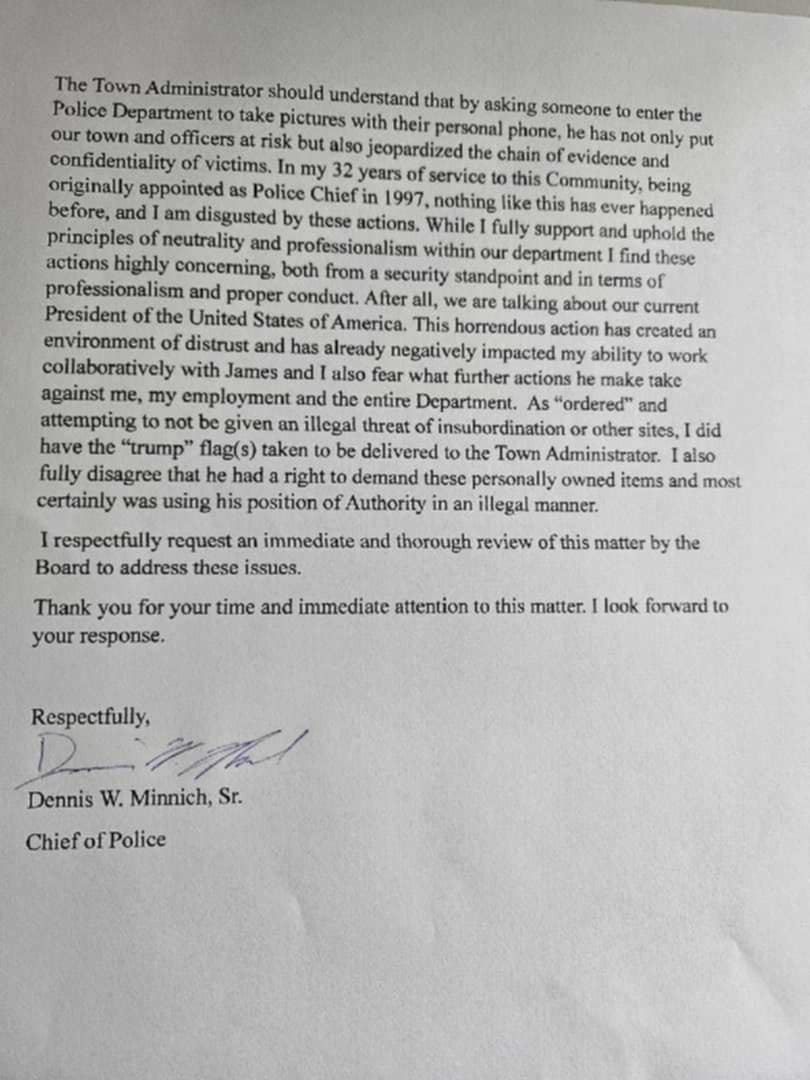 The Town Administrator should understand that by asking someone to enter the
Police Department to take pictures with their personal phone, he has not only put
our town and officers at risk but also jeopardized the chain of evidence and
confidentiality of victims. In my 32 years of service to this Community, being
originally appointed as Police Chief in 1997, nothing like this has ever happened
before, and I am disgusted by these actions. While I fully support and uphold the
principles of neutrality and professionalism within our department I find these
actions highly concerning, both from a security standpoint and in terms of
professionalism and proper conduct. After all, we are talking about our current
President of the United States of America. This horrendous action has created an
environment of distrust and has already negatively impacted my ability to work
collaboratively with James and I also fear what further actions he make take
against me, my employment and the entire Department.  As “ordered” and
attempting to not be given an illegal threat of insubordination or other sites, I did
have the “trump” flag(s) taken to be delivered to the Town Administrator.  I also
fully disagree that he had a right to demand these personally owned items and most
certainly was using his position of Authority in an illegal manner.
I respectfully request an immediate and thorough review of this matter by the
Board to address these issues.
Thank you for your time and immediate attention to this matter. I look forward to
your response.
Respectfully,
Dennis W. Minnich, Sr.
Chief of Police